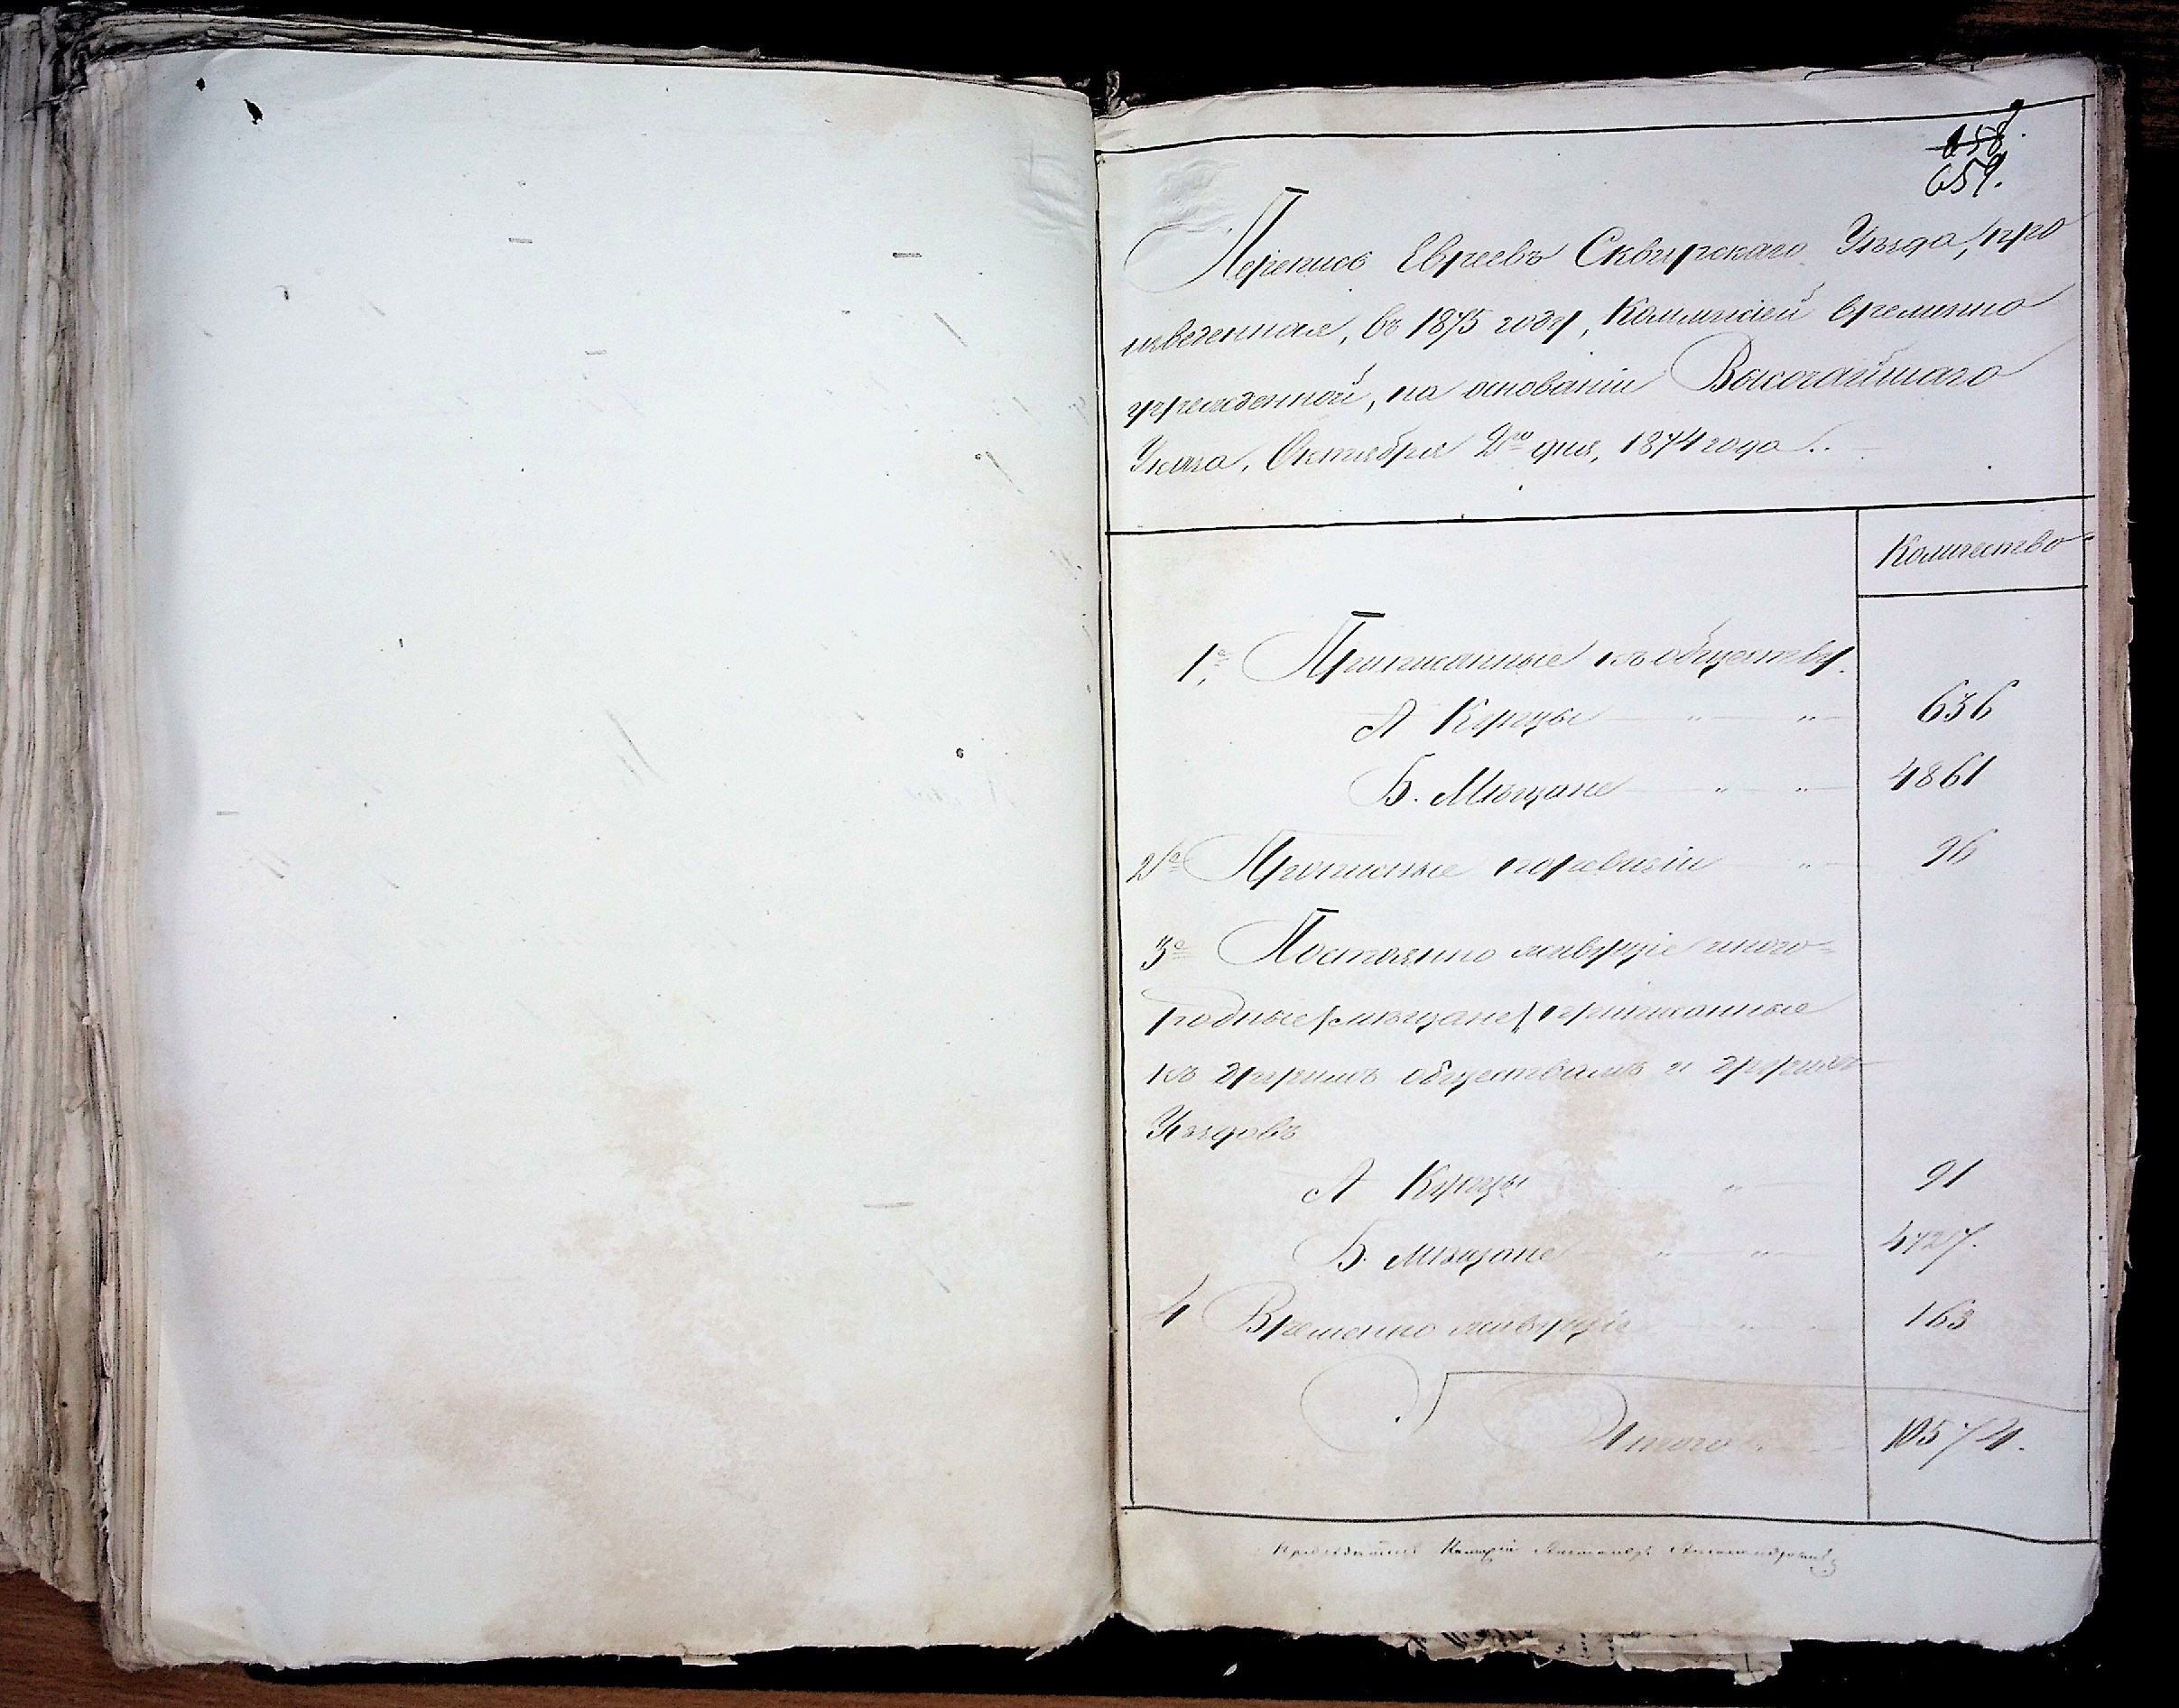 658.
659.
Перепись Евреевъ Сквирскаго Уѣзда, про
изведенная, въ 1875 году, Коммисіей временно
учрежденной, на основаніи Высочайшаго
Указа, Октября 2го дня, 1874 года.
Количество
1е, Приписанные къ обществу.
А Купцы — " — " — 636
Б. Мѣщане — " — " — 4861
2е Прописные по ревизіи " — 96
3е Постоянно живущіе иного-
родные /мѣщане/ приписанные
къ другимъ обществамъ и другихъ
Уѣздовъ
А Купцы " 91
Б. Мѣщане — " — " — 4727.
4 Временно живущіе " " 163
Итого 10574.